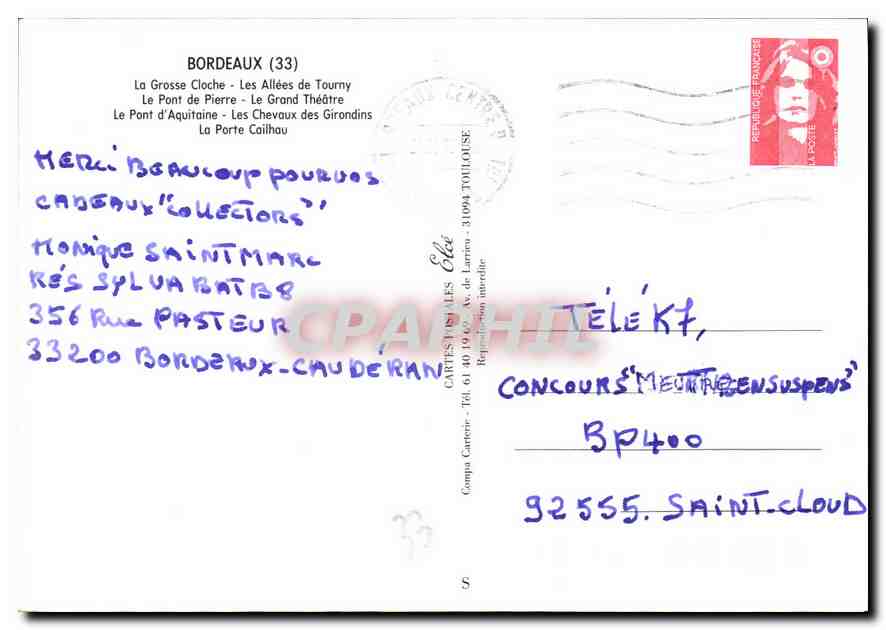 BORDEAUX (33)
La Grosse Cloche - Les Allées de Tourny
Le Pont de Pierre - Le Grand Théâtre
Le Pont d'Aquitaine - Les Chevaux des Girondins
La Porte Cailhau
MERCI BEAUCOUP POUR VOS
CADEAUX "COLLECTORS"
MONIQUE SAINTMARC
RÉS SYLVA BAT B8
356 Rue PASTEUR
33200 BORDEAUX-CAUDÉRAN
33
CARTES POSTALES Elcé
Compa Carterie - Tél. 61 40 19 69 - Av. de Larrieu - 31094 TOULOUSE
Reproduction interdite
S
BORDEAUX CENTRE
RÉPUBLIQUE FRANÇAISE
LA POSTE
TÉLÉ K7,
CONCOURS "MEURTRE EN SUSPENS"
BP400
92555. SAINT-CLOUD
CPAPHIL